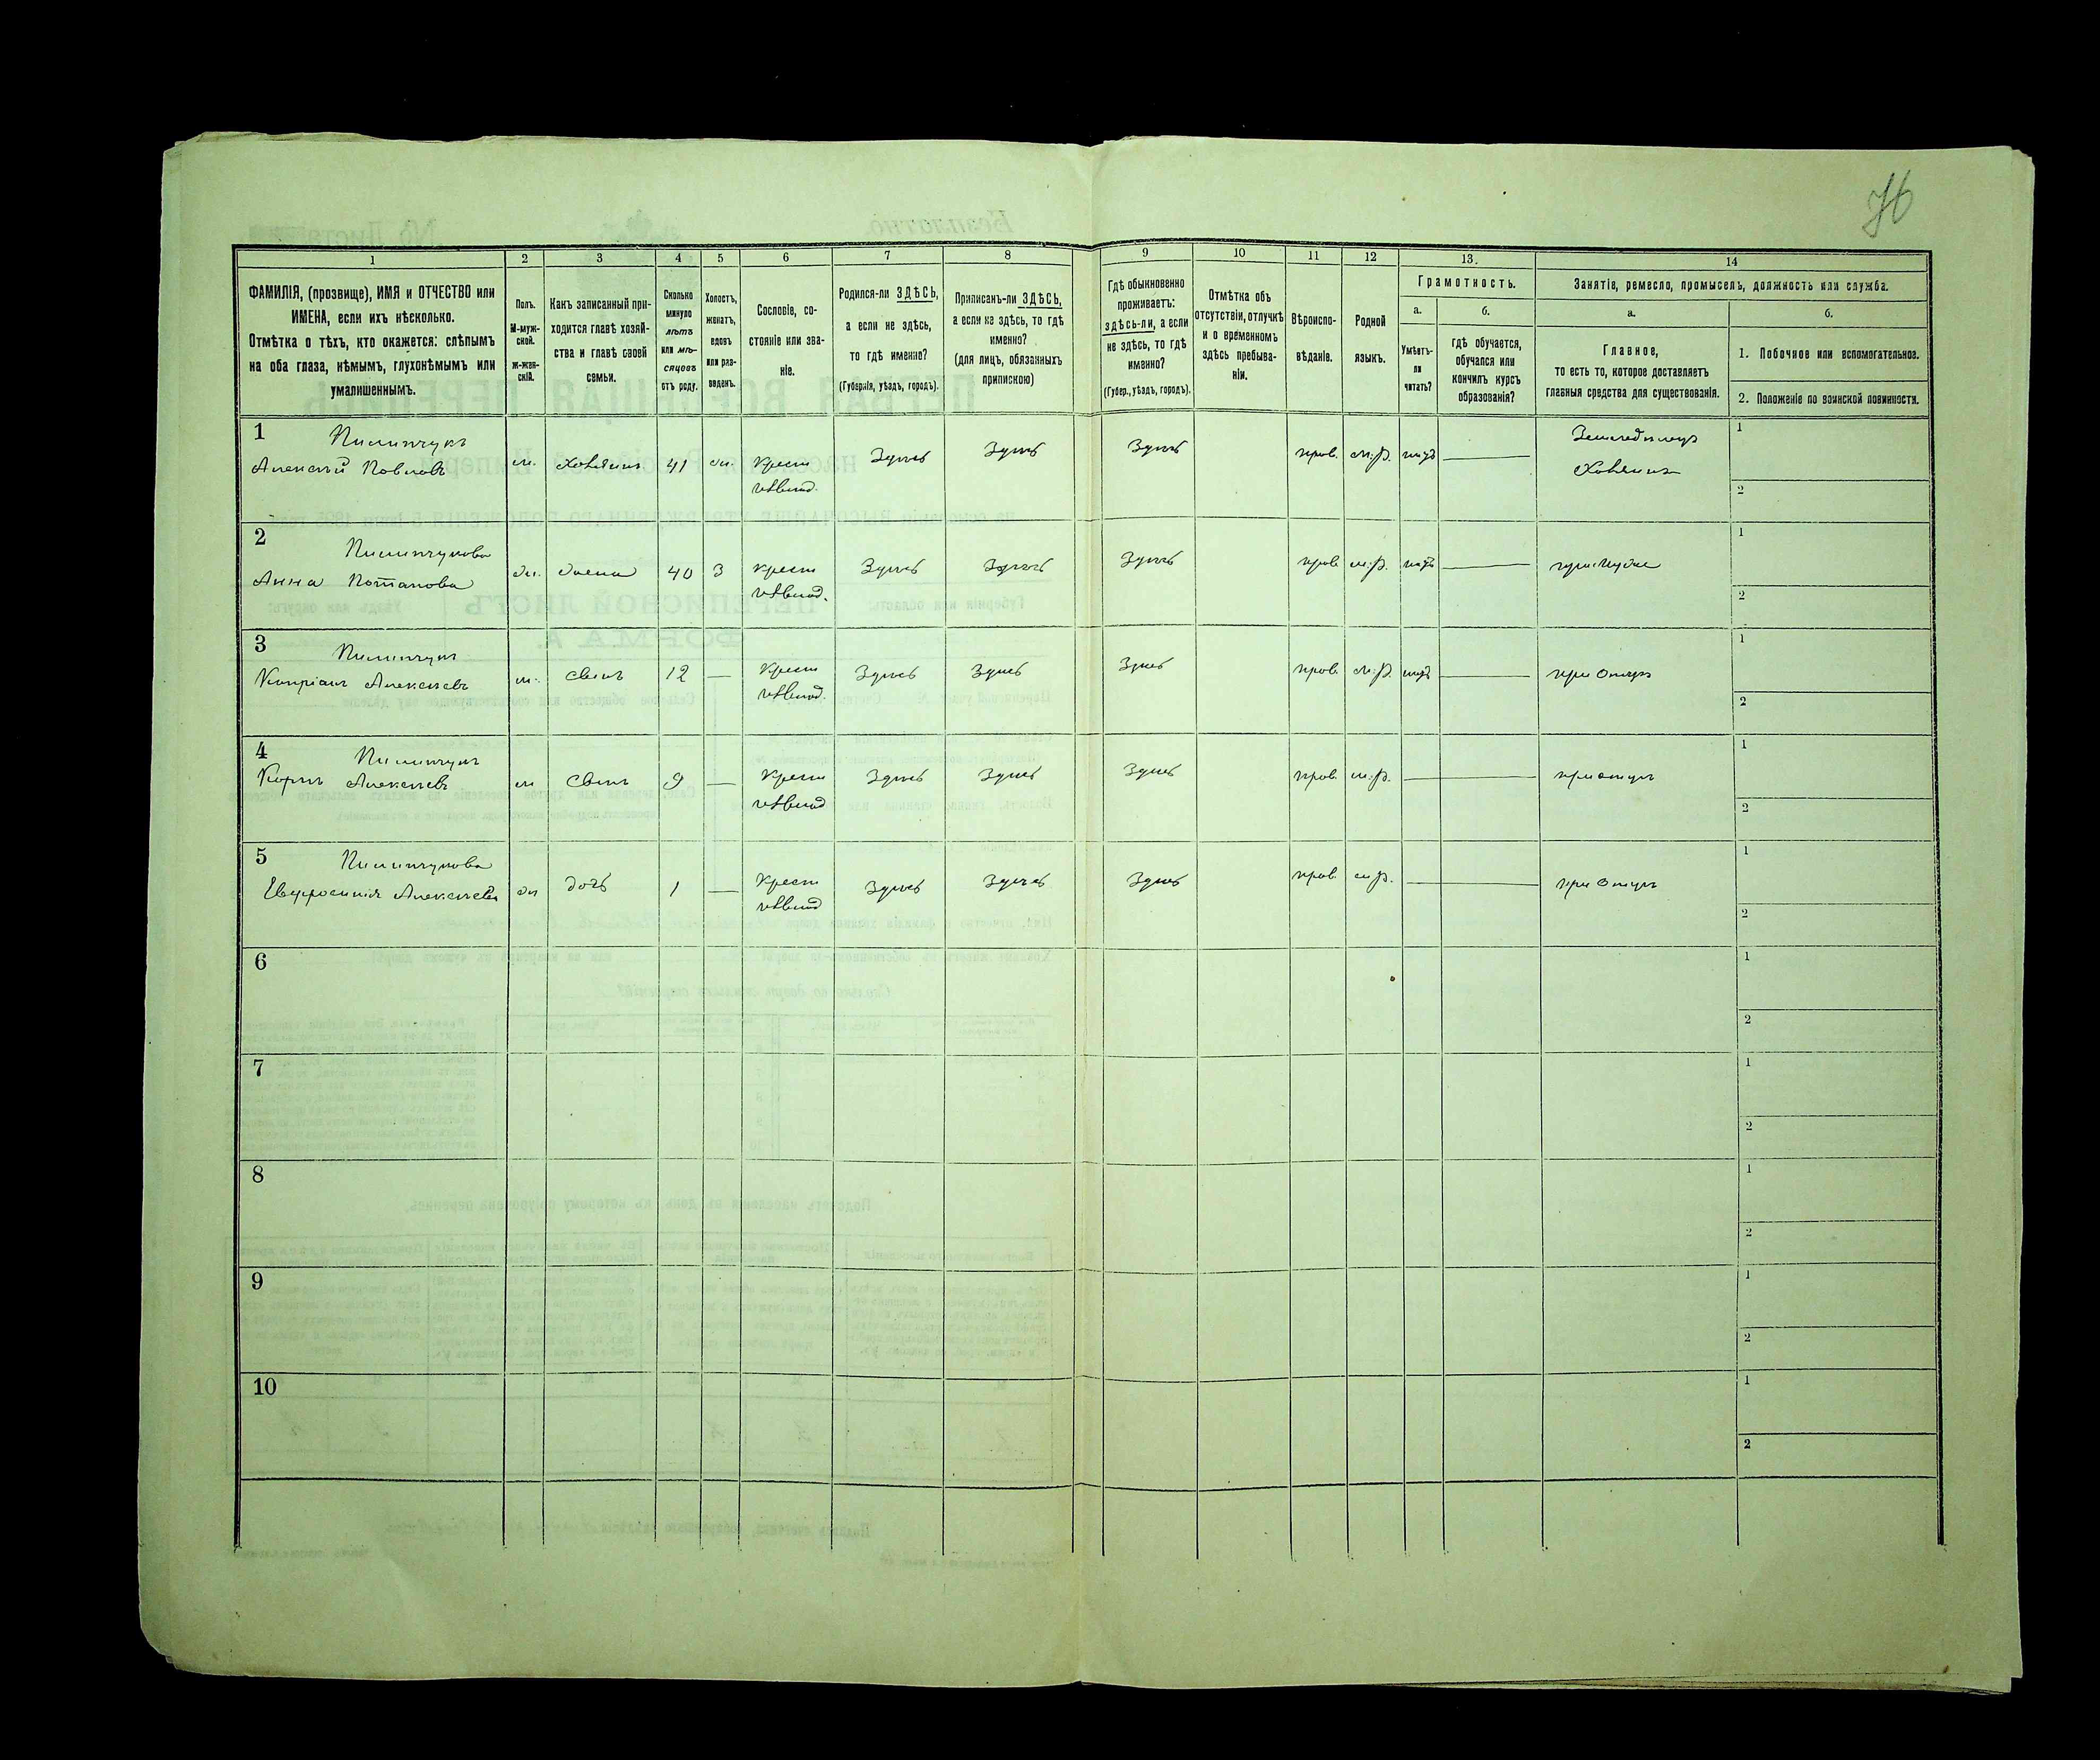 76
1
2
3
4
5
6
7
8
9
10
11
12
13.
14
ФАМИЛІЯ, (прозвище), ИМЯ и ОТЧЕСТВО или
ИМЕНА, если ихъ нѣсколько.
Отмѣтка о тѣхъ, кто окажется: слѣпымъ
на оба глаза, нѣмымъ, глухонѣмымъ или
умалишеннымъ.
Полъ.
М-муж-
ской.
ж-жен-
скій.
Какъ записанный при-
ходится главѣ хозяй-
ства и главѣ своей
семьи.
Сколько
минуло
лѣтъ
или мѣ-
сяцевъ
отъ роду.
Холостъ,
женатъ,
вдовъ
или раз-
веденъ.
Сословіе, со-
стояніе или зва-
ніе.
Родился-ли ЗДѢСЬ,
а если не здѣсь,
то гдѣ именно?
(Губернія, уѣздъ, городъ).
Приписанъ-ли ЗДѢСЬ,
а если не здѣсь, то гдѣ
именно?
(для лицъ, обязанныхъ
припискою)
Гдѣ обыкновенно
проживаетъ:
здѣсь-ли, а если
не здѣсь, то гдѣ
именно?
(Губер., уѣздъ, городъ).
Отмѣтка объ
отсутствіи, отлучкѣ
и о временномъ
здѣсь пребыва-
ніи.
Вѣроиспо-
вѣданіе.
Родной
языкъ.
Грамотность.
а.
Умѣетъ-
ли
читать?
б.
гдѣ обучается,
обучался или
кончилъ курсъ
образованія?
Занятіе, ремесло, промыселъ, должность или служба.
а.
Главное,
то есть то, которое доставляетъ
главныя средства для существованія.
б.
1. Побочное или вспомогательное.
2. Положеніе по воинской повинности.
1
Алексѣй Павловъ
м. Хозяинъ 41 ж. Крест Здѣсь Здѣсь Здѣсь прав. м.р. нѣтъ
Земледѣлецъ
Хозяинъ
1
2
2
Анна Потапова
ж. жена 40 З крест Здѣсь Здѣсь Здѣсь прав м.р. нѣтъ при мужѣ
1
2
3
Кипріанъ Алексѣевъ
м. сынъ 12 — Крест Здѣсь Здѣсь Здѣсь прав. м.р. нѣтъ при отцѣ
1
2
4
Алексѣевъ
м сынъ 9 — Крест Здѣсь Здѣсь Здѣсь прав. м.р. при отцѣ
1
2
5
Евфросинія Алексѣева
ж дочь 1 — Крест Здѣсь Здѣсь Здѣсь прав. м.р. при отцѣ
1
2
6
1
2
7
1
2
8
1
2
9
1
2
10
1
2